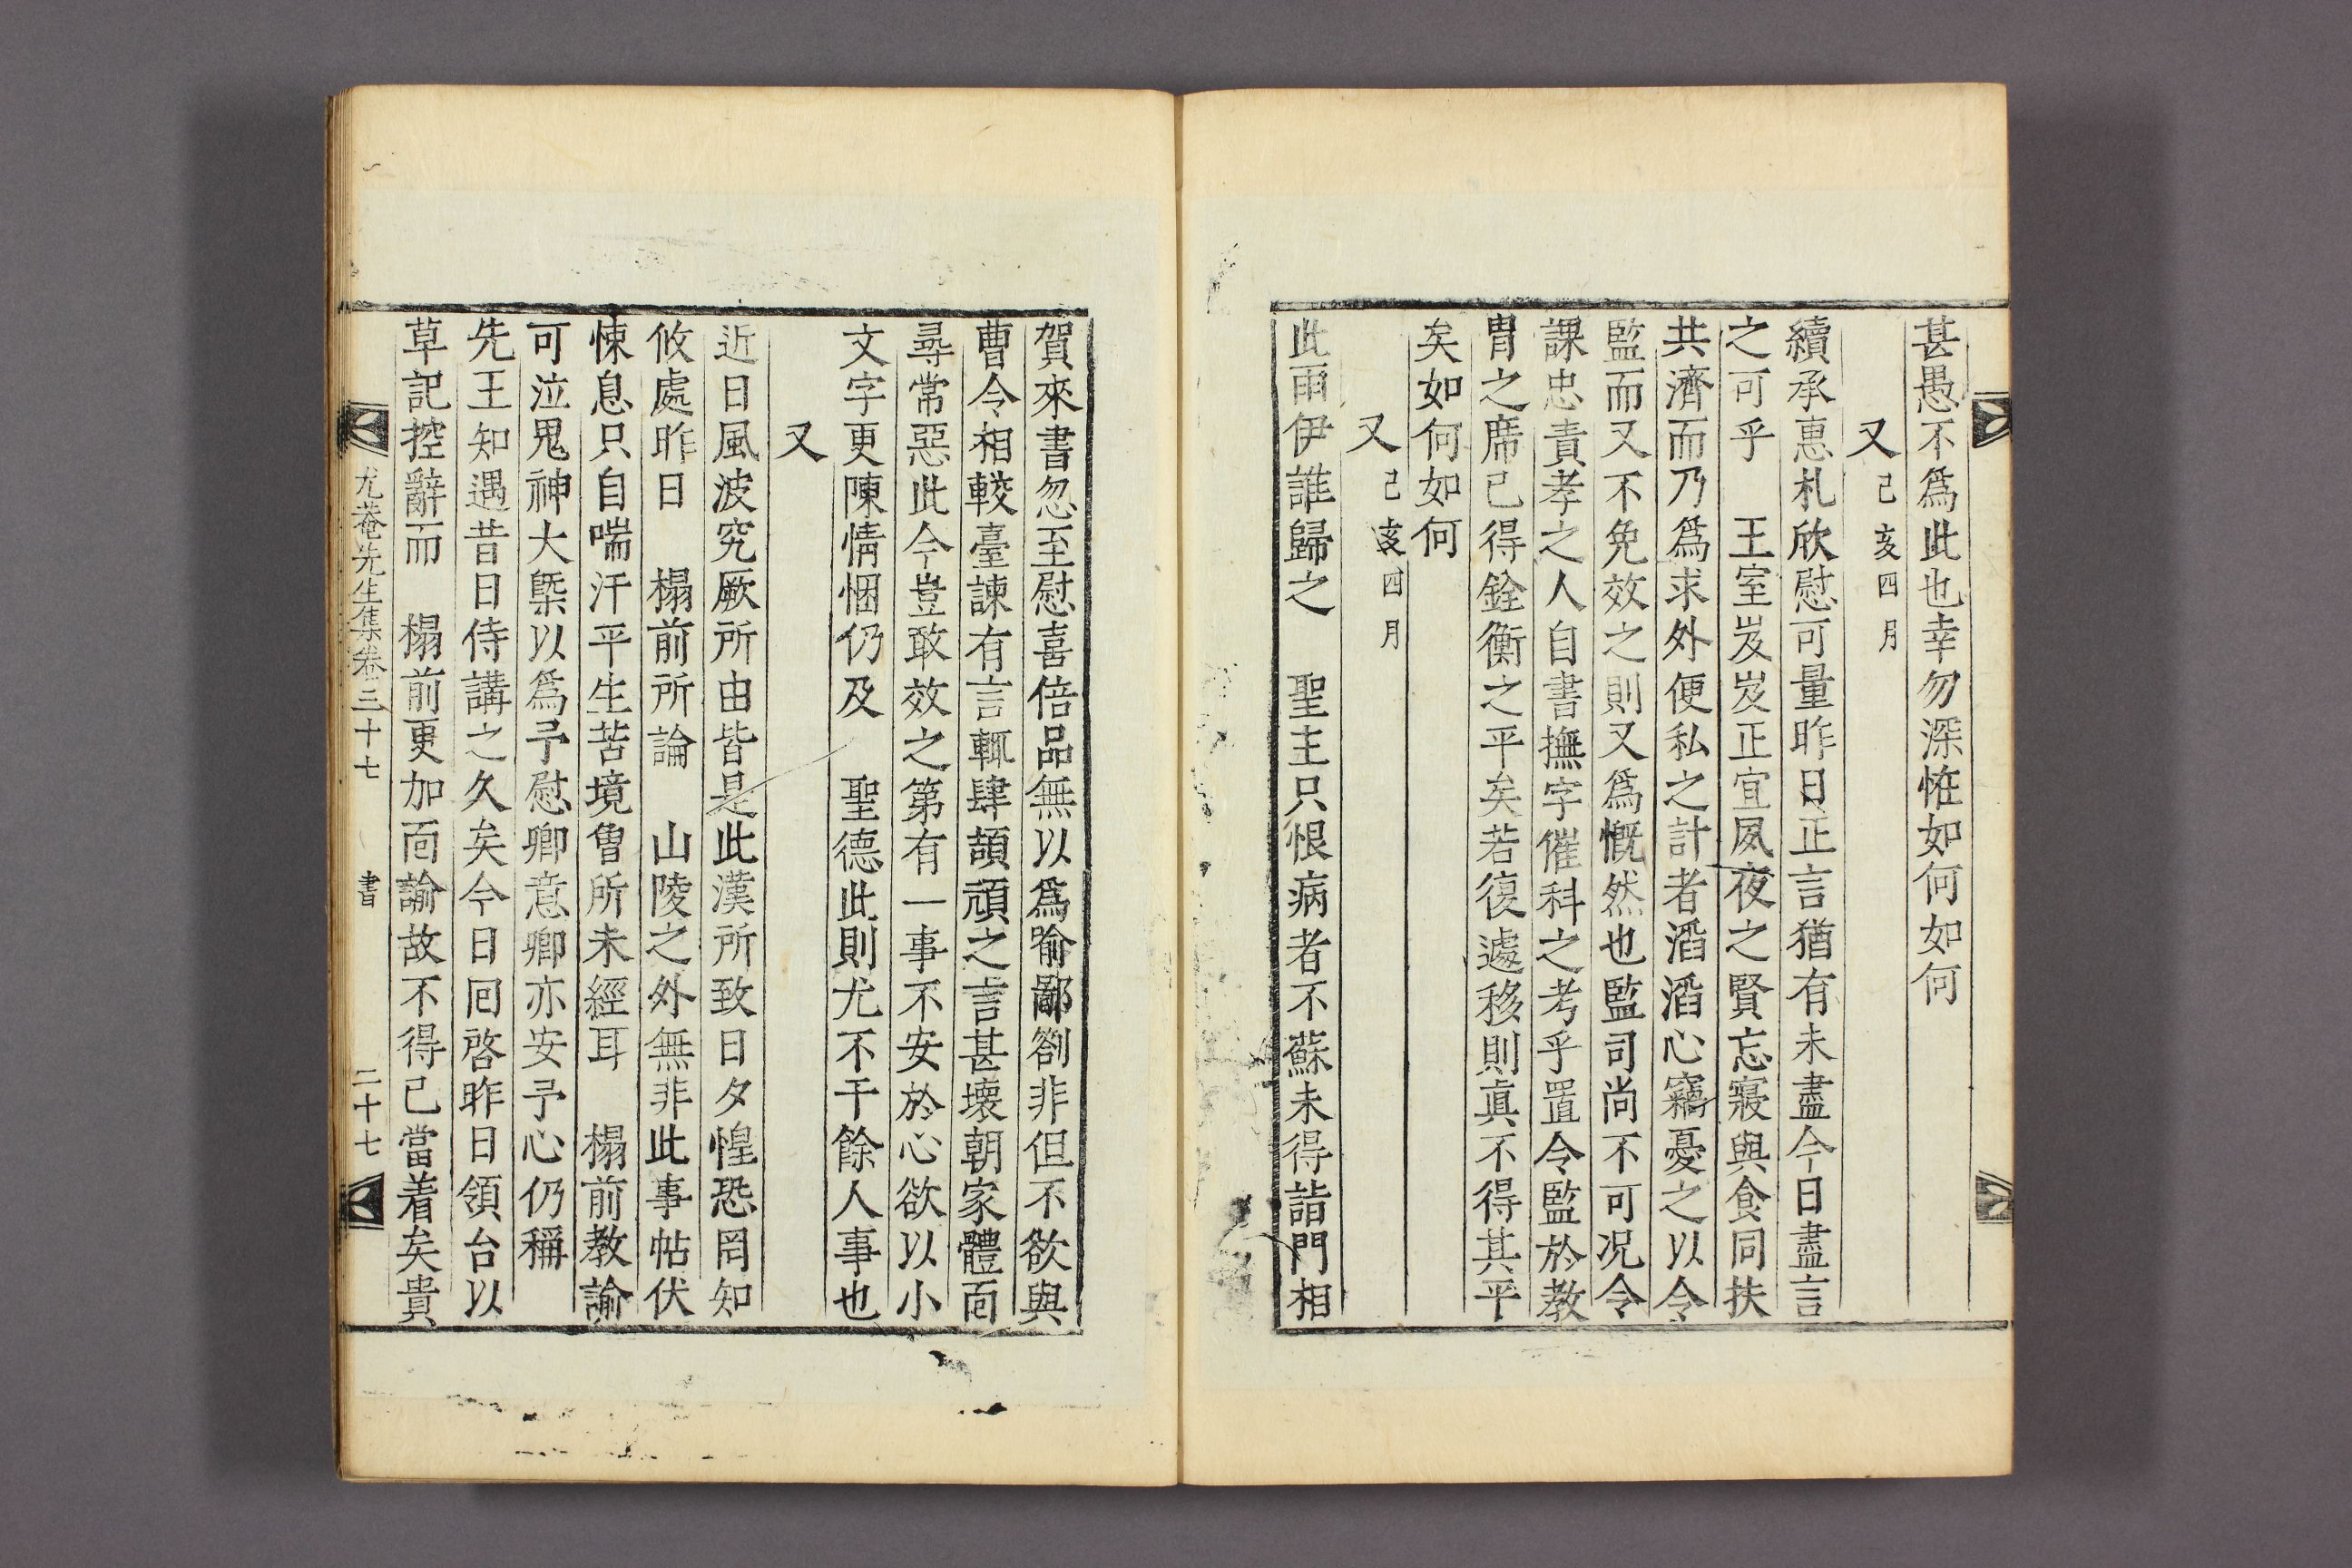 甚愚不爲此也幸勿深恠如何如何
又己亥四月
續承惠札欣慰可量昨日正言猶有未盡今日盡言
之可乎 王室岌岌正宜夙夜之賢忘寢與食同扶
共濟而乃爲求外便私之計者滔滔心竊憂之以令
監而又不免效之則又爲慨然也監司尚不可况令
課忠責孝之人自書撫字催科之考乎置令監於教
冑之席已得銓衡之平矣若復遽移則眞不得其平
矣如何如何
又己亥四月
此雨伊誰歸之 聖主只恨病者不蘇未得詣門相
賀來書忽至慰喜倍品無以爲喻鄙劄非但不欲與
曹令相較臺諫有言輒肆頡頏之言甚壞朝家體面
尋常惡此今豈敢效之第有一事不安於心欲以小
文字更陳情悃仍及 聖德此則尤不干餘人事也
又
近日風波究厥所由皆是此漢所致日夕惶恐罔知
攸處昨日 榻前所論 山陵之外無非此事帖伏
悚息只自喘汗平生苦境曾所未經耳 榻前教諭
可泣鬼神大槩以爲予慰卿意卿亦安予心仍稱
先王知遇昔日侍講之久矣今日囘啓昨日領台以
草記控辭而 榻前更加面諭故不得已當着矣貴
尤菴先生集卷三十七 書 二十七